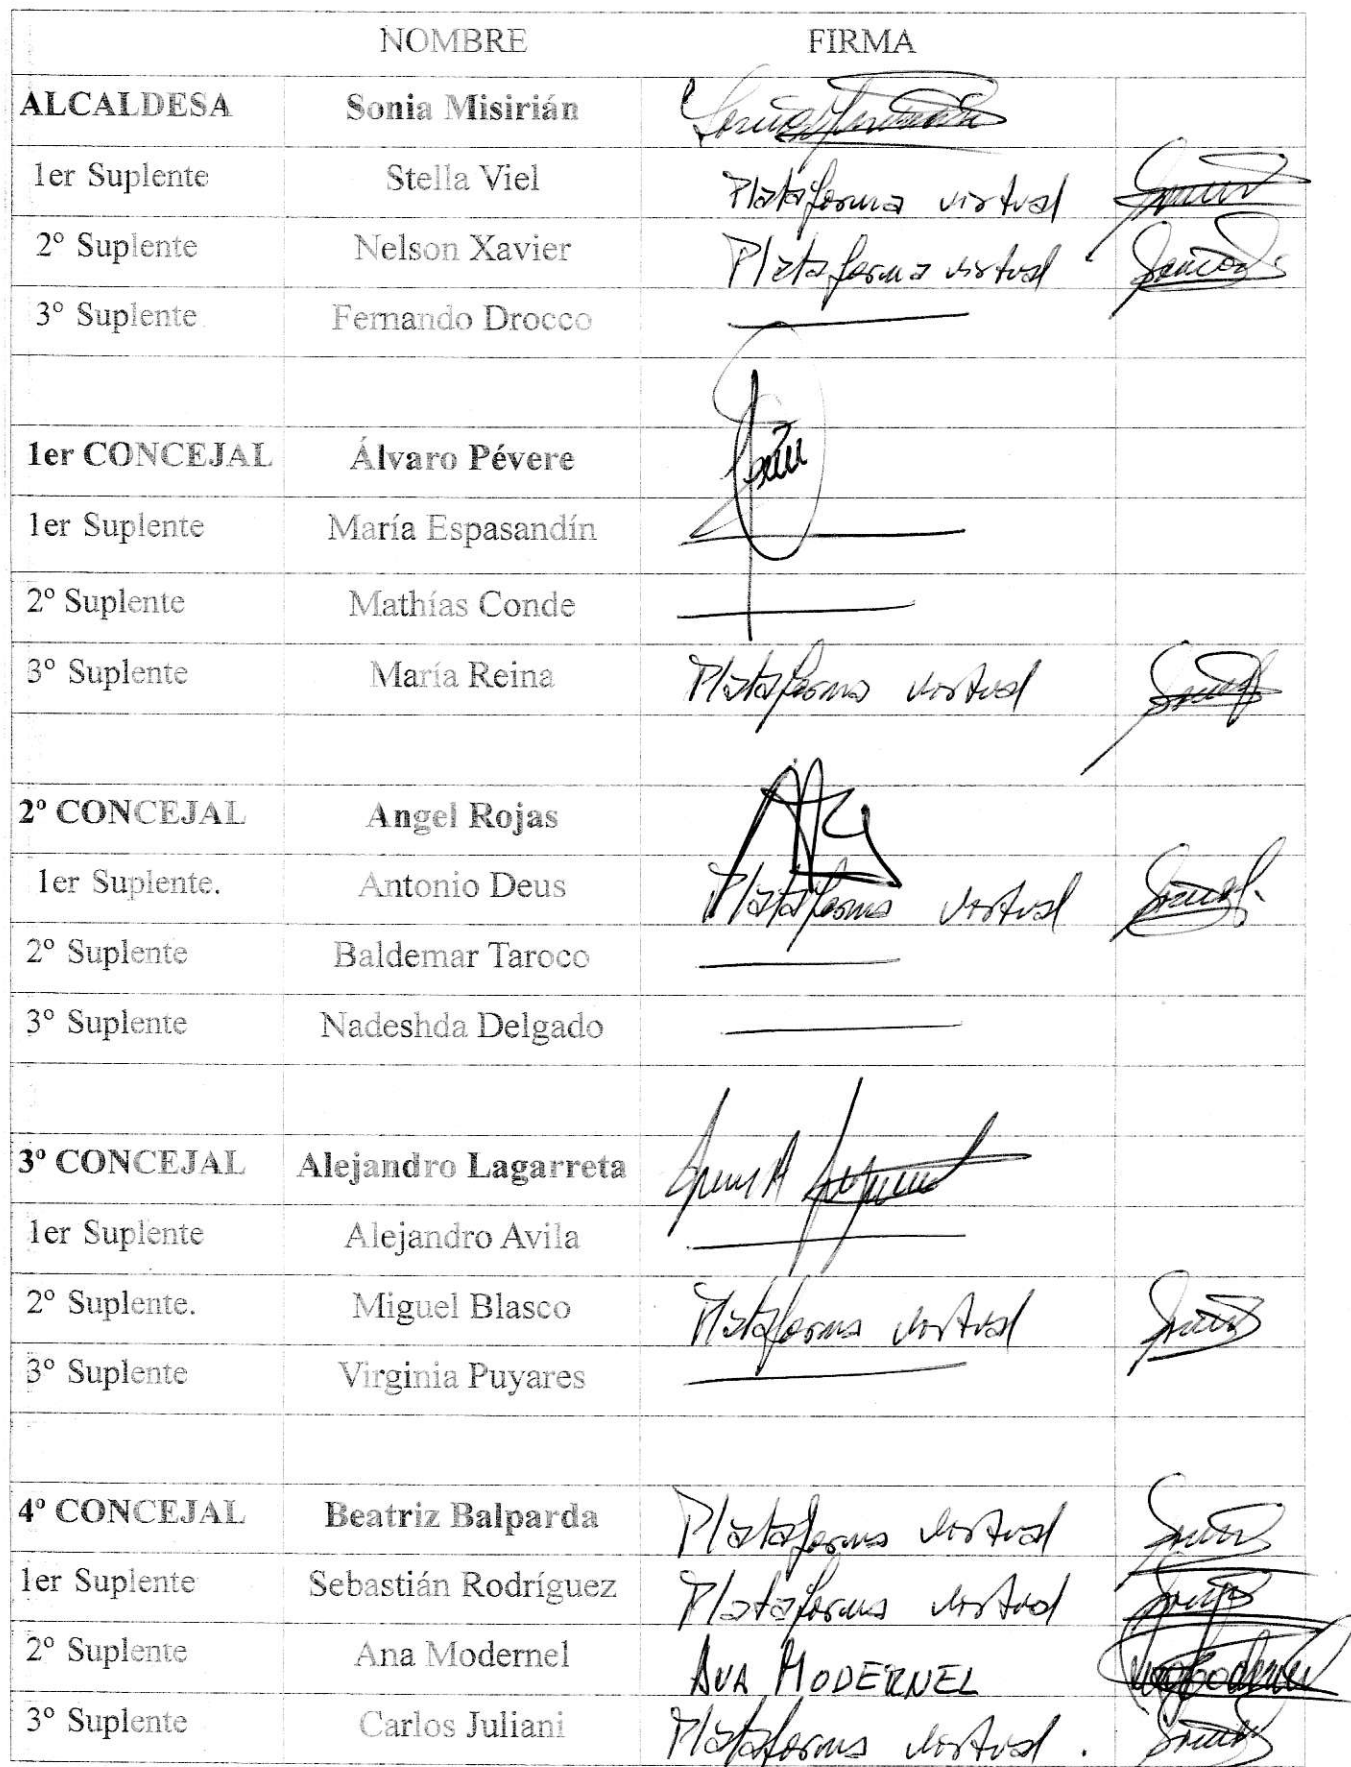 NOMBRE FIRMA
ALCALDESA Sonia Misirián
1er Suplente Stella Viel Plataforma virtual
2º Suplente Nelson Xavier Plataforma virtual
3º Suplente Fernando Drocco
1er CONCEJAL Álvaro Pévere
1er Suplente María Espasandín
2º Suplente Mathías Conde
3º Suplente María Reina Plataforma virtual
2º CONCEJAL Angel Rojas
1er Suplente. Antonio Deus Plataforma virtual
2º Suplente Baldemar Taroco
3º Suplente Nadeshda Delgado
3º CONCEJAL Alejandro Lagarreta
1er Suplente Alejandro Avila
2º Suplente. Miguel Blasco Plataforma virtual
3º Suplente Virginia Puyares
4º CONCEJAL Beatriz Balparda Plataforma virtual
1er Suplente Sebastián Rodríguez Plataforma virtual
2º Suplente Ana Modernel ANA MODERNEL
3º Suplente Carlos Juliani Plataforma virtual .